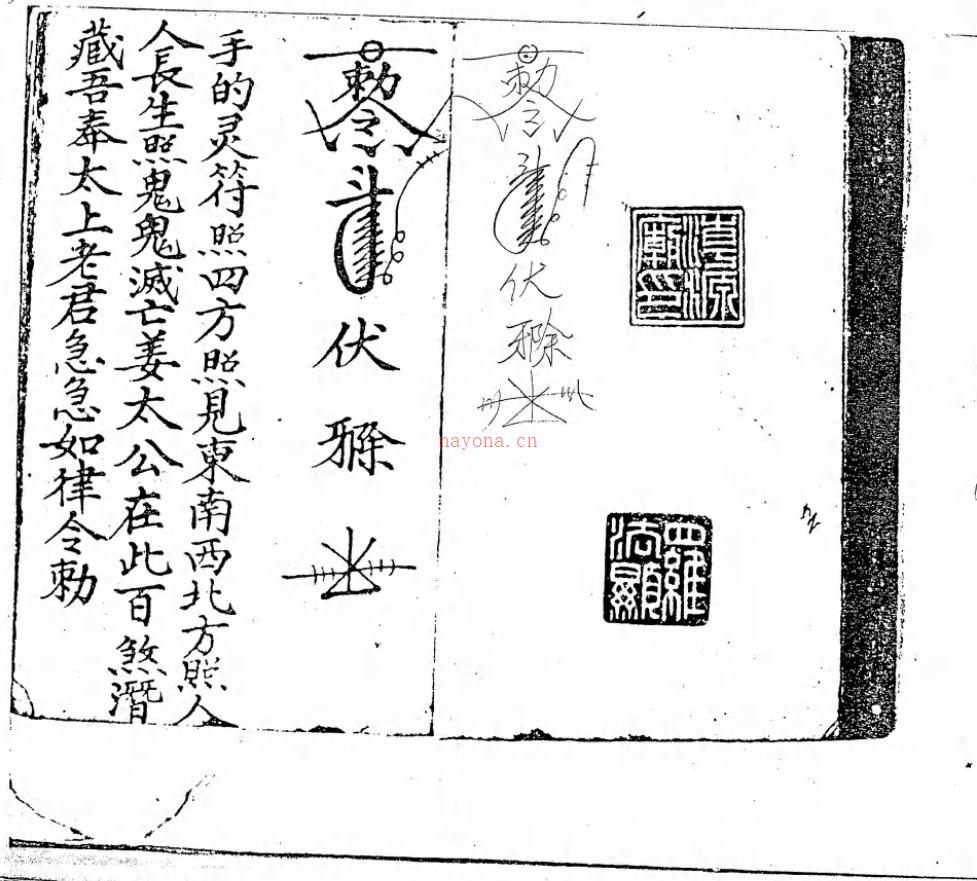 勅令
伏
勅令
斗
伏
手的灵符照四方照見東南西北方照人
人長生照鬼鬼滅亡姜太公在此百煞潛
藏吾奉太上老君急急如律令勅
nayona.cn